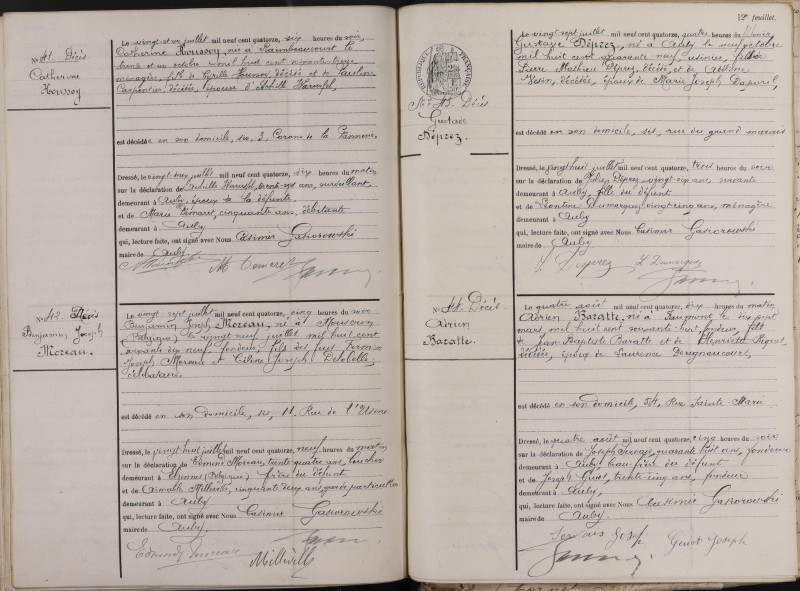 Nº 41. Décès
Catherine
Houssoy
Le vingt et un juillet mil neuf cent quatorze, six heures du soir,
Catherine Houssoy, née à Raimbeaucourt le
trente et un octobre mil huit cent soixante treize
ménagère, fille de Cyrille Houssoy, décédé et de Pauline
Carpentier, décédée, épouse d'Achille
est décédée en son domicile, sis, 3, Corons de la
Dressé, le vingt deux juillet mil neuf cent quatorze, six heures du matin
sur la déclaration de Achille trente sept ans, surveillant
demeurant à Auby, époux de la défunte
et de Marie cinquante ans, débitante
demeurant à Auby
qui, lecture faite, ont signé avec Nous Casimir Gasiorowski
maire de Auby.
Nº 42. Décès
Benjamin Joseph
Moreau.
Le vingt sept juillet mil neuf cent quatorze, cinq heures du soir
Benjamin Joseph Moreau, né à Mouscron
(Belgique) le vingt neuf juillet mil huit cent
soixante dix neuf, fondeur, fils des feus
Joseph Moreau et Céline Joseph Delobelle,
célibataire.
est décédé en son domicile, sis, 11. Rue de l'Usine
Dressé, le vingt huit juillet mil neuf cent quatorze, neuf heures du matin
sur la déclaration de Edmond Moreau, trente quatre ans, boucher
demeurant à (Belgique) frère du défunt
et de cinquante deux ans, garde particulier
demeurant à Auby
qui, lecture faite, ont signé avec Nous Casimir Gasiorowski
maire de Auby,
Edmond Moreau
12e feuillet.
RÉPUBLIQUE FRANÇAISE
Nº 43. Décès
Gustave
Déprez.
Le vingt sept juillet mil neuf cent quatorze, quatre heures du soir
Gustave Déprez, né à Auby le neuf octobre
mil huit cent quarante neuf, usinier, fils de
Pierre Mathieu Déprez, décédé, et de
décédée, époux de Marie Joseph
est décédé en son domicile, sis, rue du grand marais
Dressé, le vingt huit juillet mil neuf cent quatorze, trois heures du soir
sur la déclaration de Déprez vingt six ans, servante
demeurant à Auby, fille du défunt
et de Léontine vingt cinq ans, ménagère
demeurant à Auby
qui, lecture faite, ont signé avec Nous Casimir Gasiorowski
maire de Auby
Nº 44. Décès
Adrien
Baratte.
Le quatre août mil neuf cent quatorze, six heures du matin
Adrien Baratte, né à le dix sept
mars mil huit cent soixante huit, fondeur, fils
de Jean Baptiste Baratte et de Henriette
décédée, époux de Laurence
est décédé en son domicile, 54, Rue Sainte Marie
Dressé, le quatre août mil neuf cent quatorze, cinq heures du soir
sur la déclaration de Joseph Servais, quarante huit ans, fondeur
demeurant à Auby beau-frère du défunt
et de Joseph trente cinq ans, fondeur
demeurant à Auby,
qui, lecture faite, ont signé avec Nous Casimir Gasiorowski
maire de Auby.
Servais Josef
Joseph